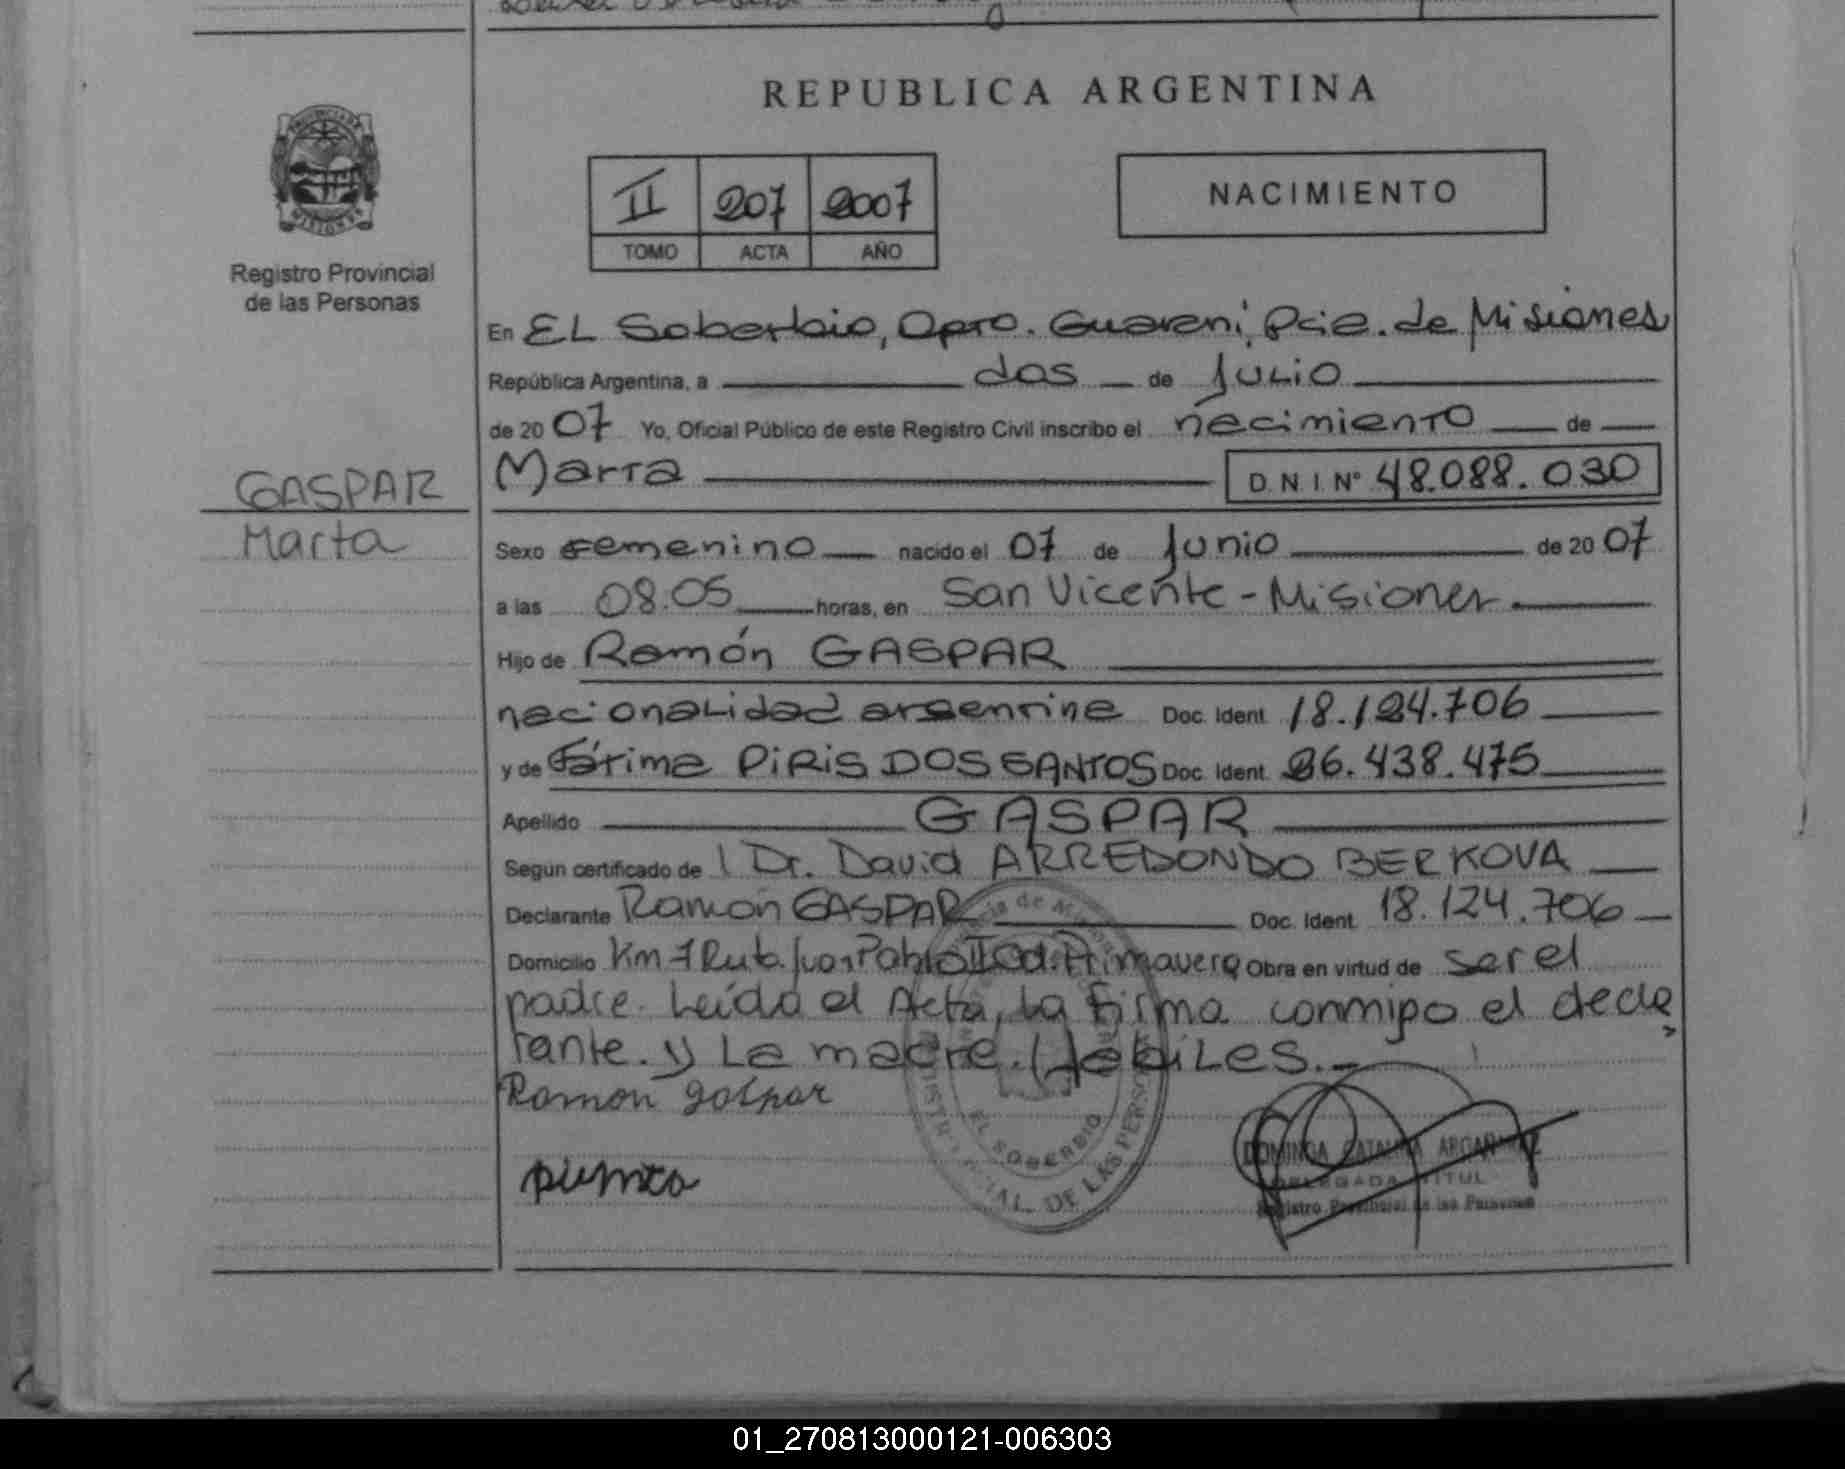 REPUBLICA ARGENTINA
II 207 2007
TOMO ACTA AÑO
NACIMIENTO
PROVINCIA DE
MISIONES
Registro Provincial
de las Personas
GASPAR
Marta
En EL Soberbio, Dpto. Guarani, Pcia. de Misiones
República Argentina, a dos de Julio
de 20 07 Yo, Oficial Público de este Registro Civil inscribo el nacimiento de
Marta D.N.I. N° 48.088.030
Sexo femenino nacido el 07 de Junio de 20 07
a las 08.05 horas, en San Vicente - Misiones
Hijo de Ramón GASPAR
nacionalidad argentina Doc. Ident. 18.124.706
y de Fátima PIRIS DOS SANTOS Doc. Ident. 26.438.475
Apellido GASPAR
Según certificado de l Dr. David ARREDONDO BERKOVA
Declarante Ramón GASPAR Doc. Ident. 18.124.706
Domicilio Km 7 Ruta Juan Pablo II Cd. Primavera Obra en virtud de ser el
padre. Leída el Acta, la firma conmigo el decla
rante. y La madre. Hábiles.-
Ramon gaspar
EL SOBERBIO
DE LAS PERSO
DOMINGA CATALINA
DELEGADA TITUL
Registro Provincial de las Personas
01_270813000121-006303